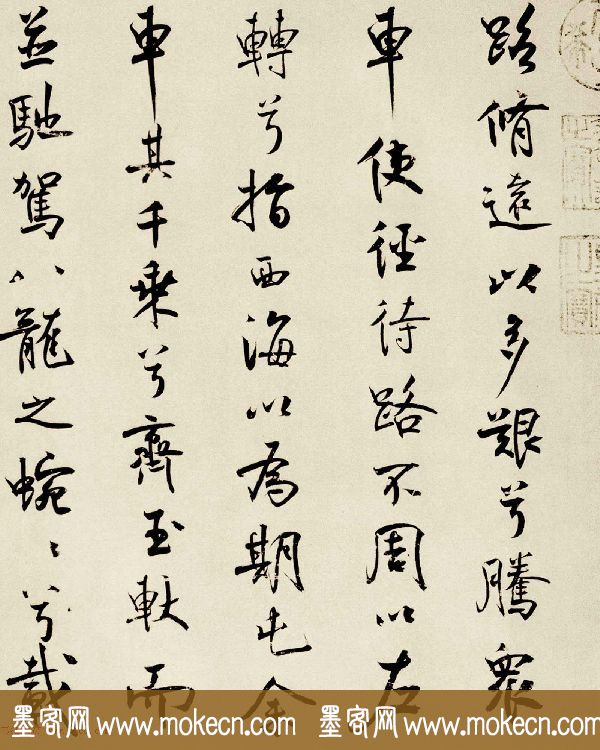 路脩遠以多艱兮騰眾
車使徑待路不周以左
轉兮指西海以為期屯余
車其千乘兮齊玉軑而
並馳駕八龍之蜿〻兮載
墨客网 www.mokecn.com 墨客网 www.mokecn.com